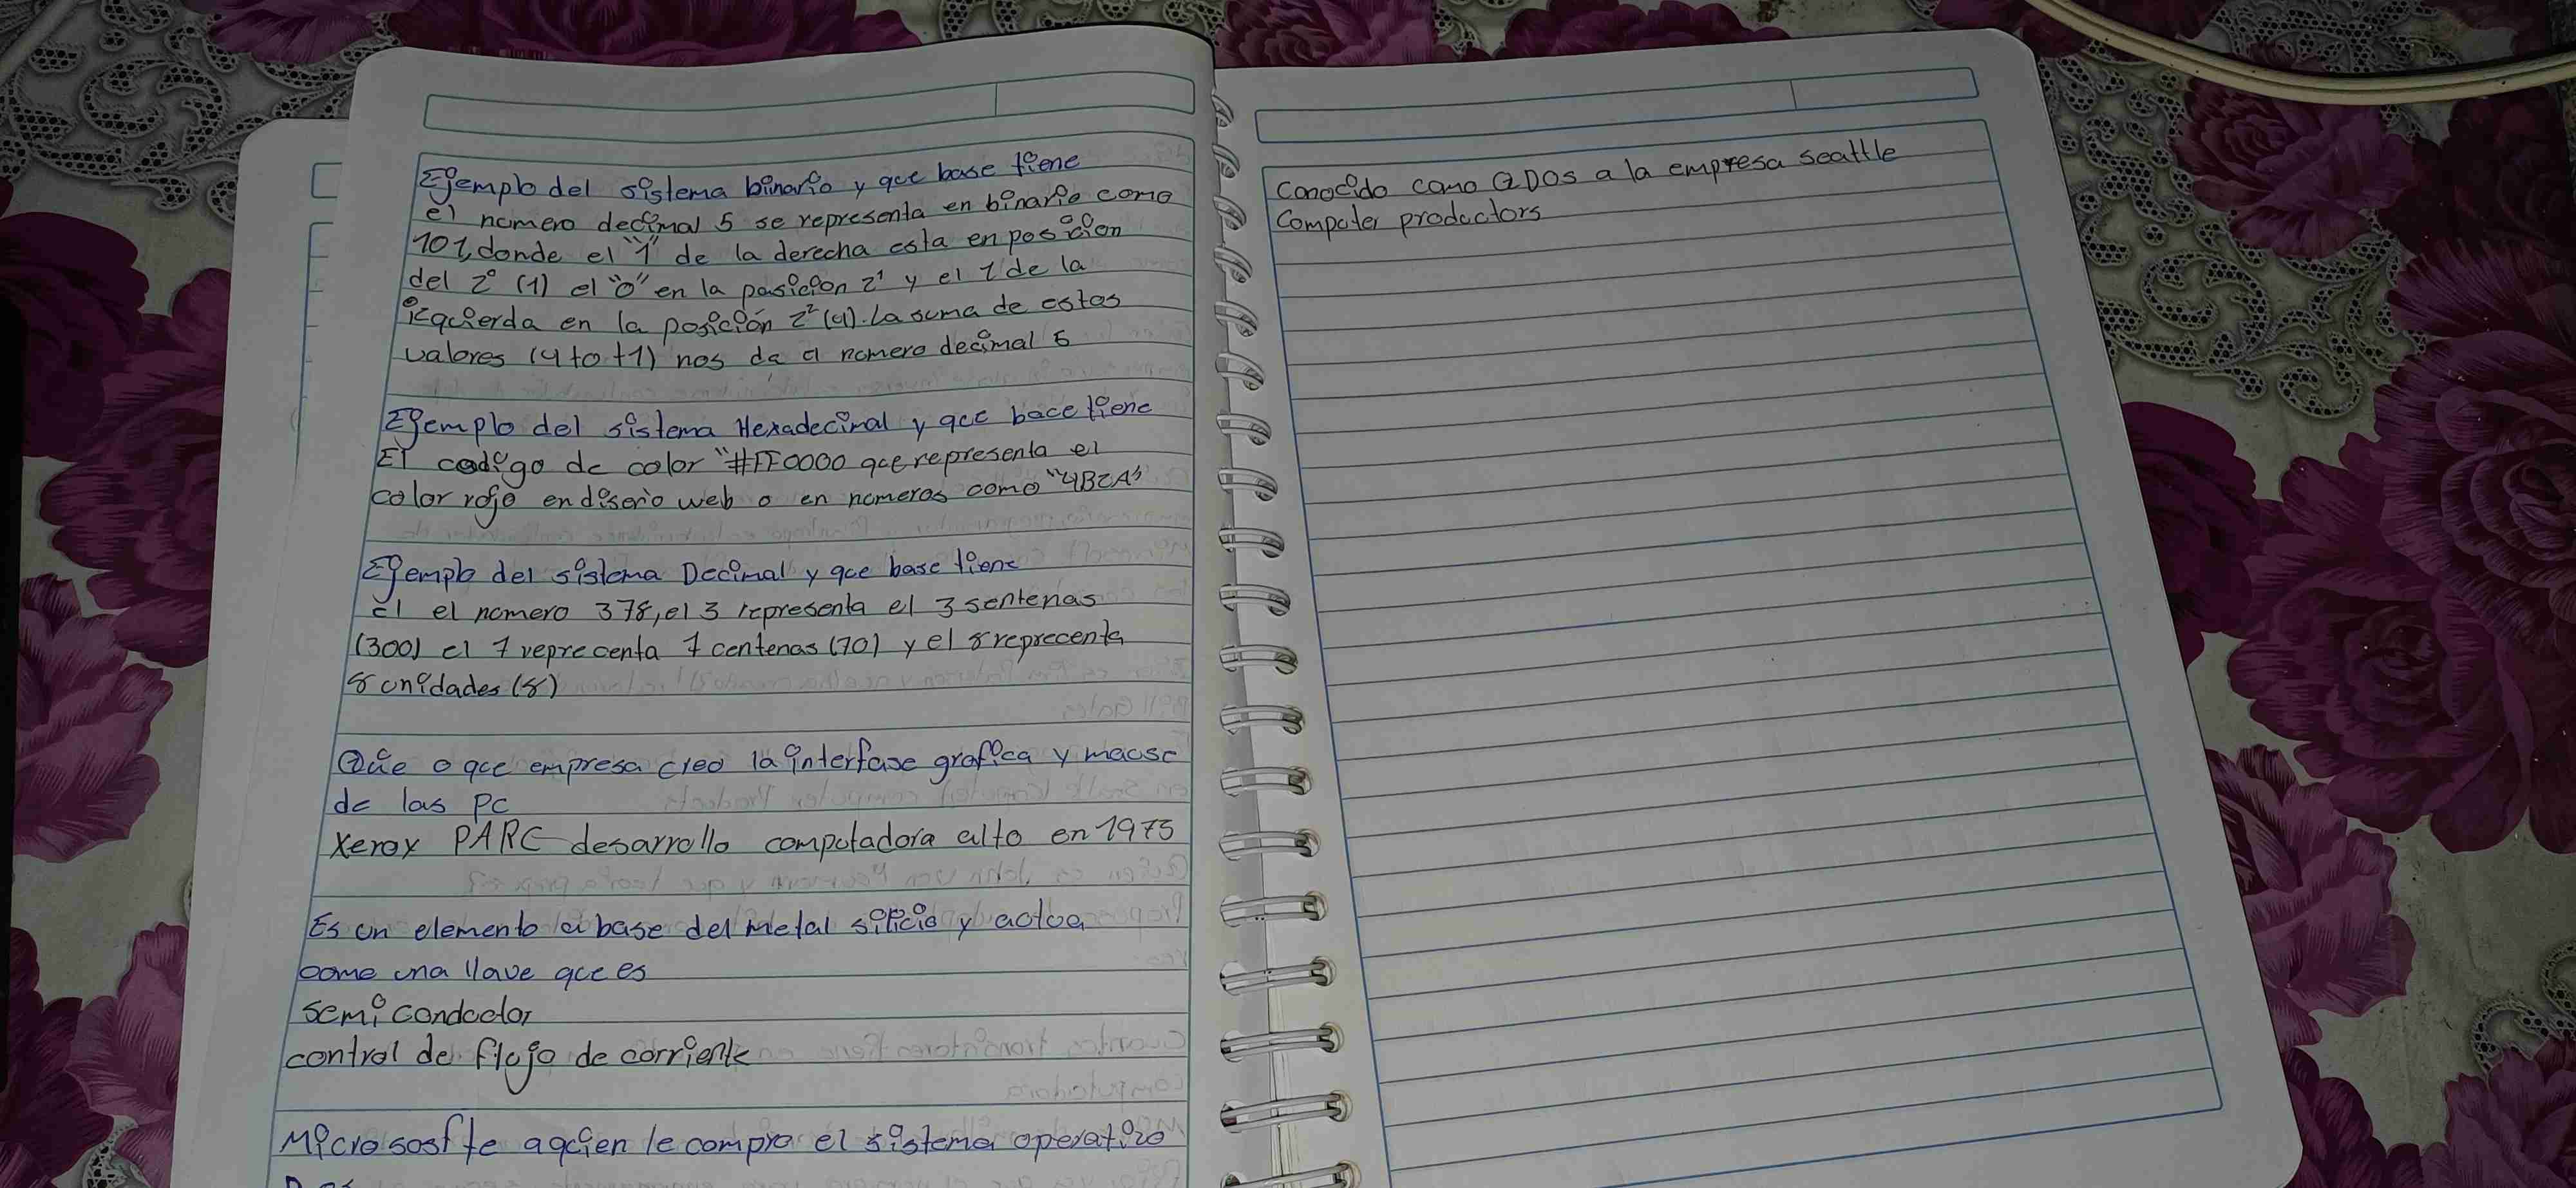 Ejemplo del sistema binario y que base tiene
el numero decimal 5 se representa en binario como
101, donde el "1" de la derecha esta en posicion
del 2⁰ (1) el "0" en la pasicion 2¹ y el 1 de la
izquierda en la posición 2² (4). La suma de estos
valores (4+0+1) nos da el numero decimal 5
Ejemplo del sistema Hexadecimal y que bace tiene
El codigo de color "#FF0000 que representa el
color rojo en diseño web o en numeros como "4B2A"
Ejemplo del sistema Decimal y que base tiene
el el numero 378, el 3 representa el 3 sentenas
(300) el 7 reprecenta 7 centenas (70) y el 8 reprecenta
8 unidades (8)
Que o que empresa creo la interfase grafica y mause
de las PC
Xerox PARC desarrollo computadora alto en 1973
Es un elemento a base del metal silicio y actua
como una llave que es
semiconductor
control de flujo de corriente
Micrososfte aquien le compro el sistema operativo
Conocido como QDOS a la empresa seattle
Computer productors